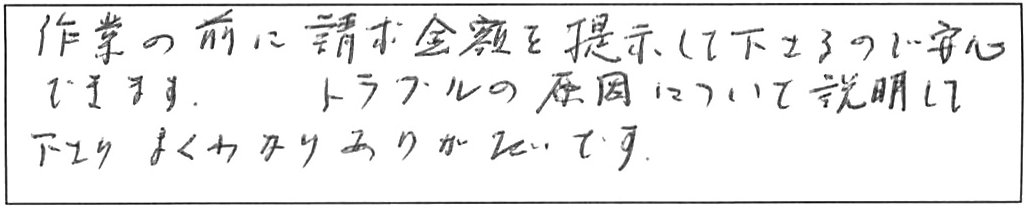 作業の前に請求金額を提示して下さるので安心
できます。 トラブルの原因について説明して
下さり よくわかりありがたいです。